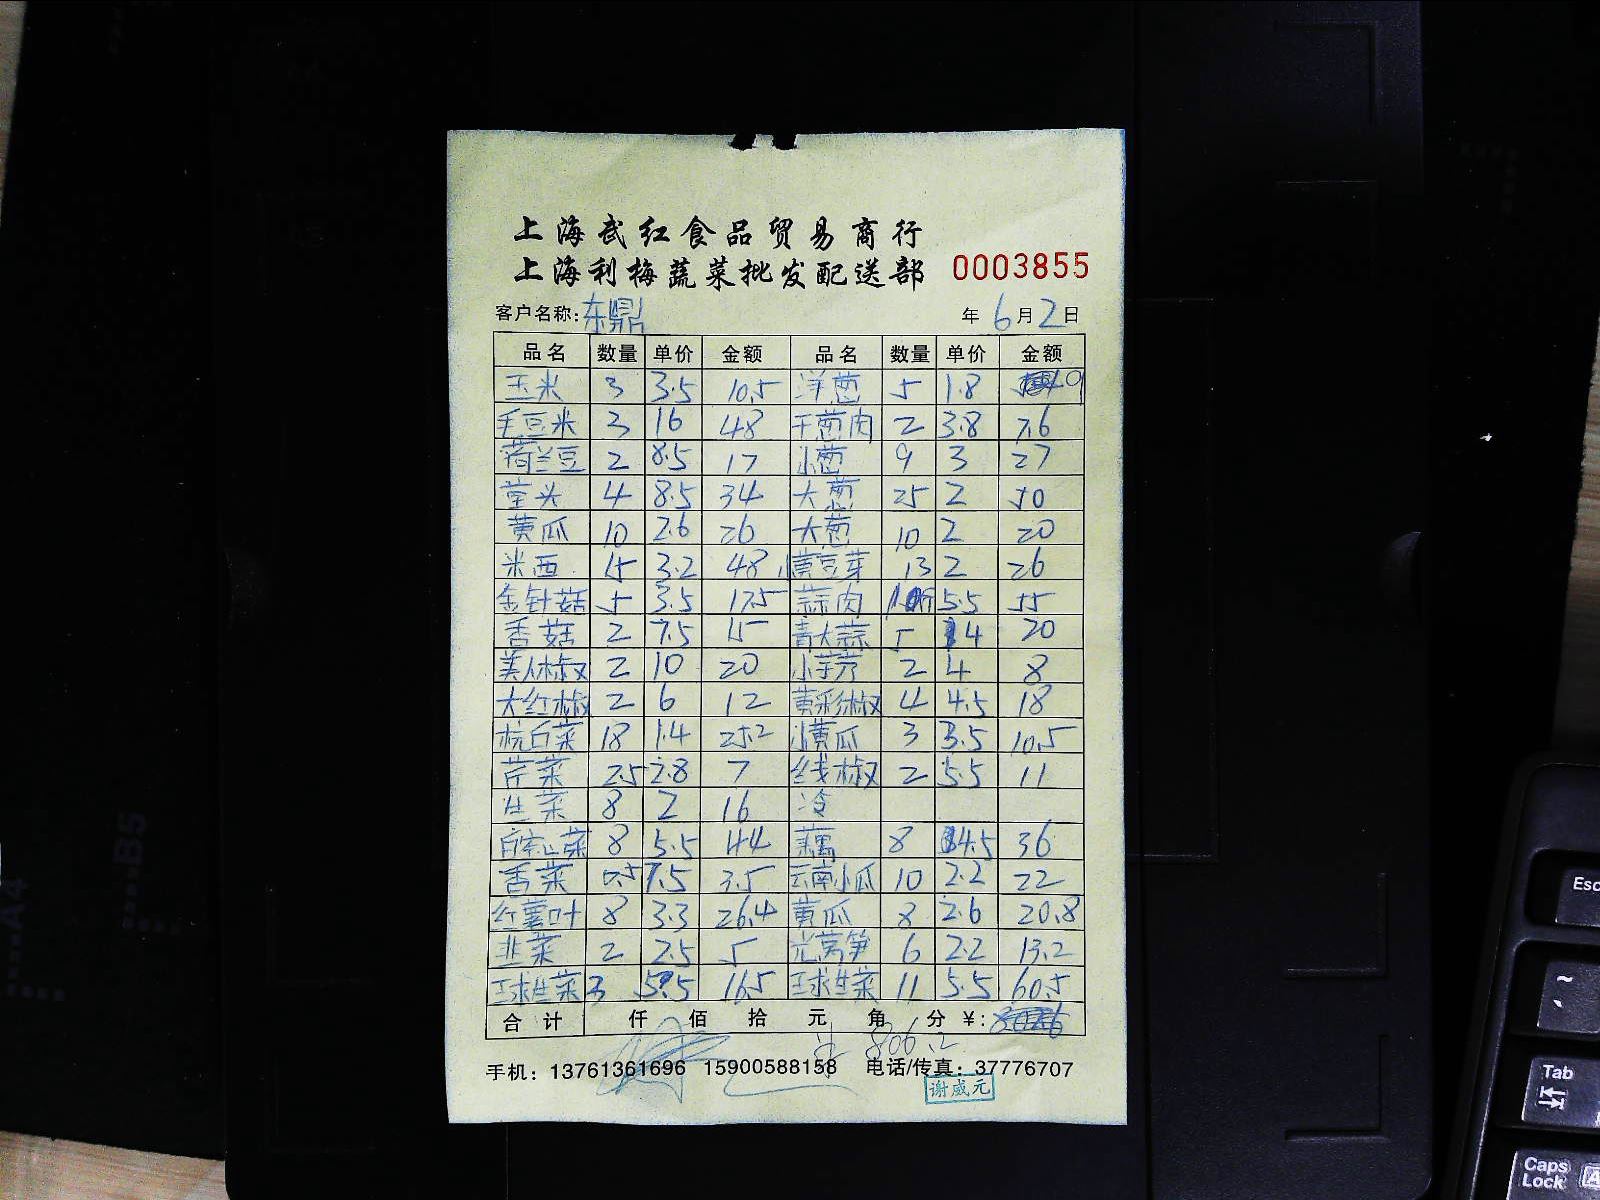 上海武红食品贸易商行
上海利梅蔬菜批发配送部 0003855
客户名称: 东鼎 年 6 月 2 日
品名 数量 单价 金额 品名 数量 单价 金额
玉米 3 3.5 10.5 洋葱 5 1.8 9
毛豆米 3 16 48 干葱肉 2 3.8 7.6
荷兰豆 2 8.5 17 小葱 9 3 27
草头 4 8.5 34 大葱 25 2 50
黄瓜 10 2.6 26 大葱 10 2 20
米西 15 3.2 48 小黄豆芽 13 2 26
金针菇 5 3.5 17.5 蒜肉 5.5 55
香菇 2 7.5 15 青大蒜 5 4 20
美人椒 2 10 20 小芋艿 2 4 8
大红椒 2 6 12 黄彩椒 4 4.5 18
杭白菜 18 1.4 25.2 小黄瓜 3 3.5 10.5
芹菜 2.5 2.8 7 线椒 2 5.5 11
生菜 8 2 16 冷
8 5.5 44 藕 8 4.5 36
香菜 0.5 7.5 3.5 云南小瓜 10 2.2 22
红薯叶 8 3.3 26.4 黄瓜 8 2.6 20.8
韭菜 2 2.5 5 光莴笋 6 2.2 13.2
球生菜 3 5.5 16.5 球生菜 11 5.5 60.5
合计 仟 佰 拾 元 角 分 ¥:
806.2
手机: 13761361696 15900588158 电话/传真: 37776707
谢威元
A4
B5
Esc
~
Tab
Caps Lock
A